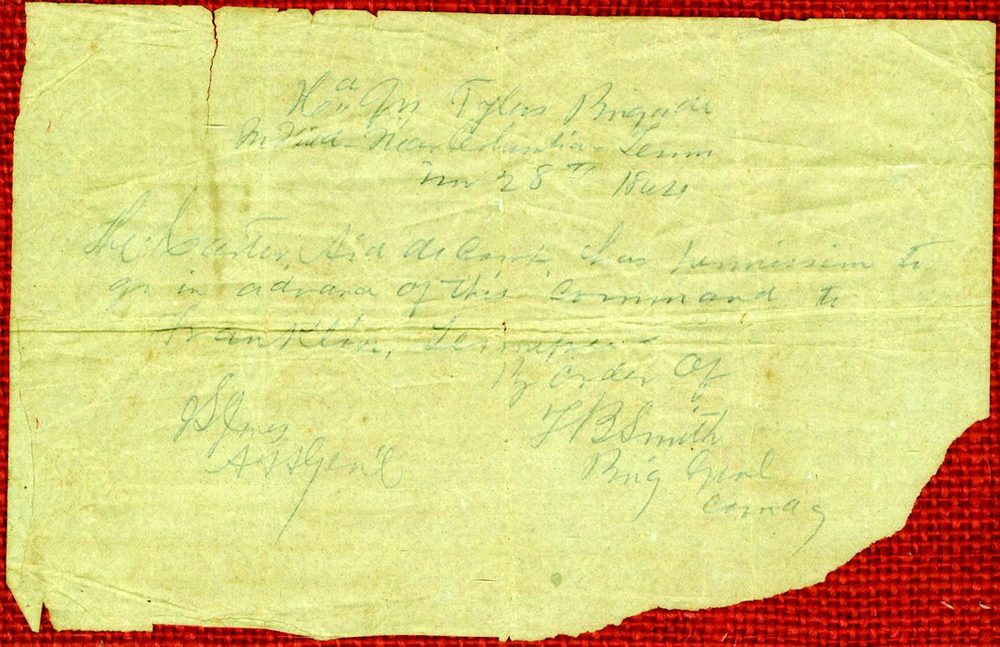 Hd Qrs Tylers Brigade
In Field - Near Columbia - Tenn
Nov 28th 1864
Carter, Aid de Camp has permission to
go in advance of this command to
Franklin, Tennessee
By order of
T B Smith
Brig Genl
Comdg
J S Jones
A A Gen'l